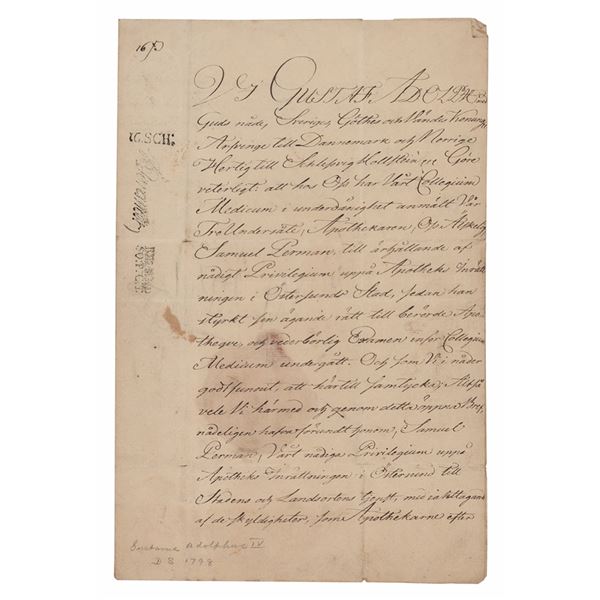 16 β
16.SCH:
WJ GUSTAF ADOLPH med
Guds nåde, Sveriges, Göthes och Vändes Konung,
Arfvinge till Dannemark och Norrige
Hertig till Schlesvig Hollstein &c Göre
veterligt: att hos Oss har Vårt Collegium
Medicum i underdånighet anmält Vår
TroUndersåte, Apothekaren, Oss Älskelig
Samuel Perman, till erhållande af
nådigt Privilegium uppå Apotheks Inrätt
ningen i Östersunds Stad, sedan han
styrkt sin ägande rätt till berörde Apo
theque, och vederbörlig Examen inför Collegium
Medicum undergått. Och som Vi i nåder
godtfunnit, att härtill samtycka; Altså
vele Vi härmed och genom detta öppna Bref
nådeligen hafva förundt honom, Samuel
Perman, Vårt nådiga Privilegium uppå
Apotheks Inrättningen i Östersund till
Stadens och Landsortens tjenst, med iakttagande
af de skyldigheter, som Apothekarne efter
Gustavus Adolphus IV
DS 1798